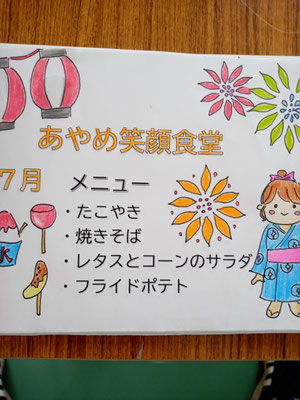 あやめ笑顔食堂
7月
メニュー
・たこやき
・焼きそば
・レタスとコーンのサラダ
・フライドポテト
氷